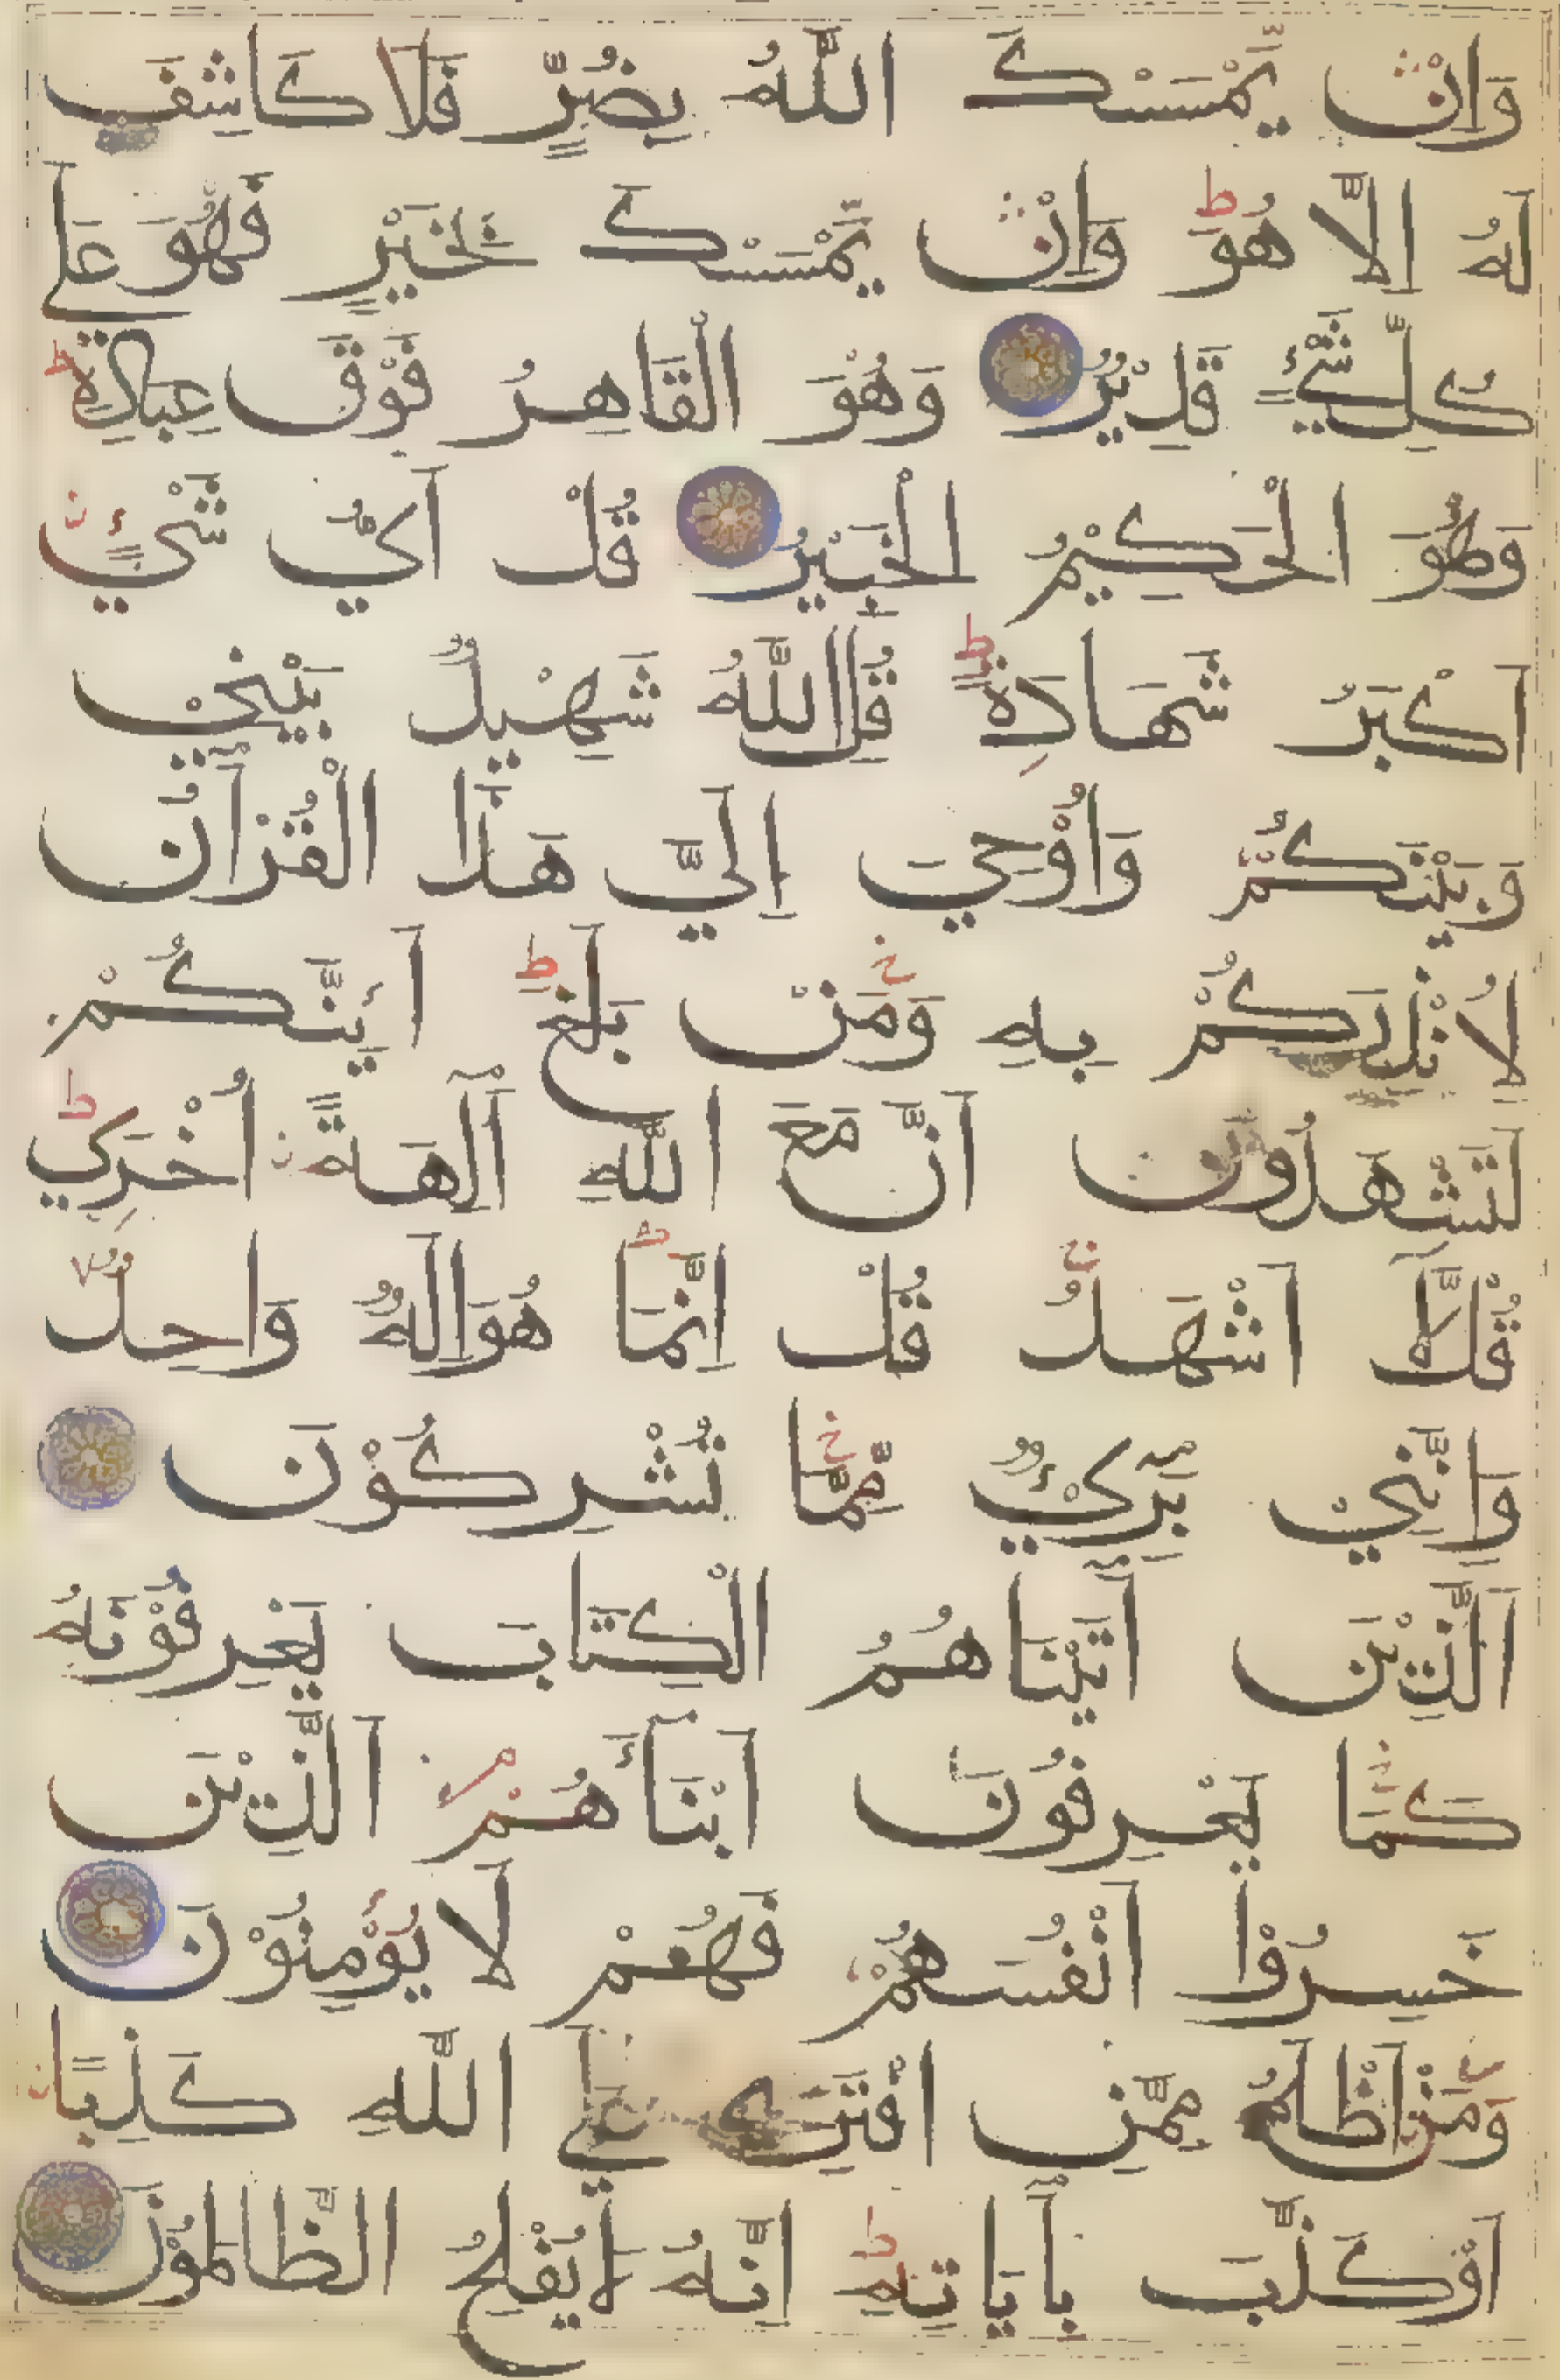 وَاِنْ يَّمْسَسْكَ اللّٰهُ بِضُرٍّ فَلَا كَاشِفَ
لَهُ اِلَّا هُوَ ط وَاِنْ يَّمْسَسْكَ بِخَيْرٍ فَهُوَ عَلٰي
كُلِّ شَيْءٍ قَدِيْرٌ وَهُوَ الْقَاهِرُ فَوْقَ عِبَادِهٖ ط
وَهُوَ الْحَكِيْمُ الْخَبِيْرُ قُلْ اَيُّ شَيْءٍ
اَكْبَرُ شَهَادَةً ط قُلِ اللّٰهُ شَهِيْدٌ بَيْنِيْ
وَبَيْنَكُمْ وَاُوْحِيَ اِلَيَّ هٰذَا الْقُرْاٰنُ
لِاُنْذِرَكُمْ بِهٖ وَمَنْ بَلَغَ ط اَئِنَّكُمْ
لَتَشْهَدُونَ اَنَّ مَعَ اللّٰهِ اٰلِهَةً اُخْرٰي ط
قُلْ لَّا اَشْهَدُ ج قُلْ اِنَّمَا هُوَ اِلٰهٌ وَاحِدٌ
وَاِنَّنِيْ بَرِيْءٌ مِّمَّا تُشْرِكُوْنَ
اَلَّذِيْنَ اٰتَيْنَاهُمُ الْكِتَابَ يَعْرِفُوْنَهُ
كَمَا يَعْرِفُوْنَ اَبْنَاۤءَهُمْ م اَلَّذِيْنَ
خَسِرُوْا اَنْفُسَهُمْ فَهُمْ لَا يُؤْمِنُوْنَ
وَمَنْ اَظْلَمُ مِمَّنِ افْتَرٰي عَلٰي اللّٰهِ كَذِبًا
اَوْ كَذَّبَ بِاٰيَاتِهٖ ط اِنَّهُ لَا يُفْلِحُ الظَّالِمُوْنَ